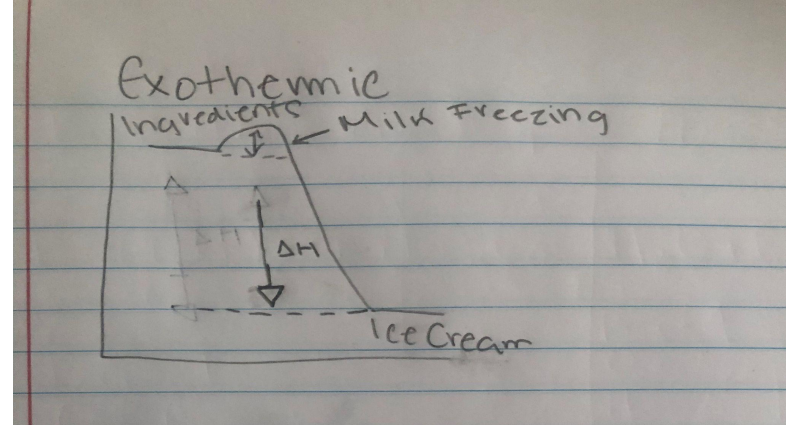 Exothermic
Ingredients
Milk Freezing
ΔH
ΔH
Ice Cream